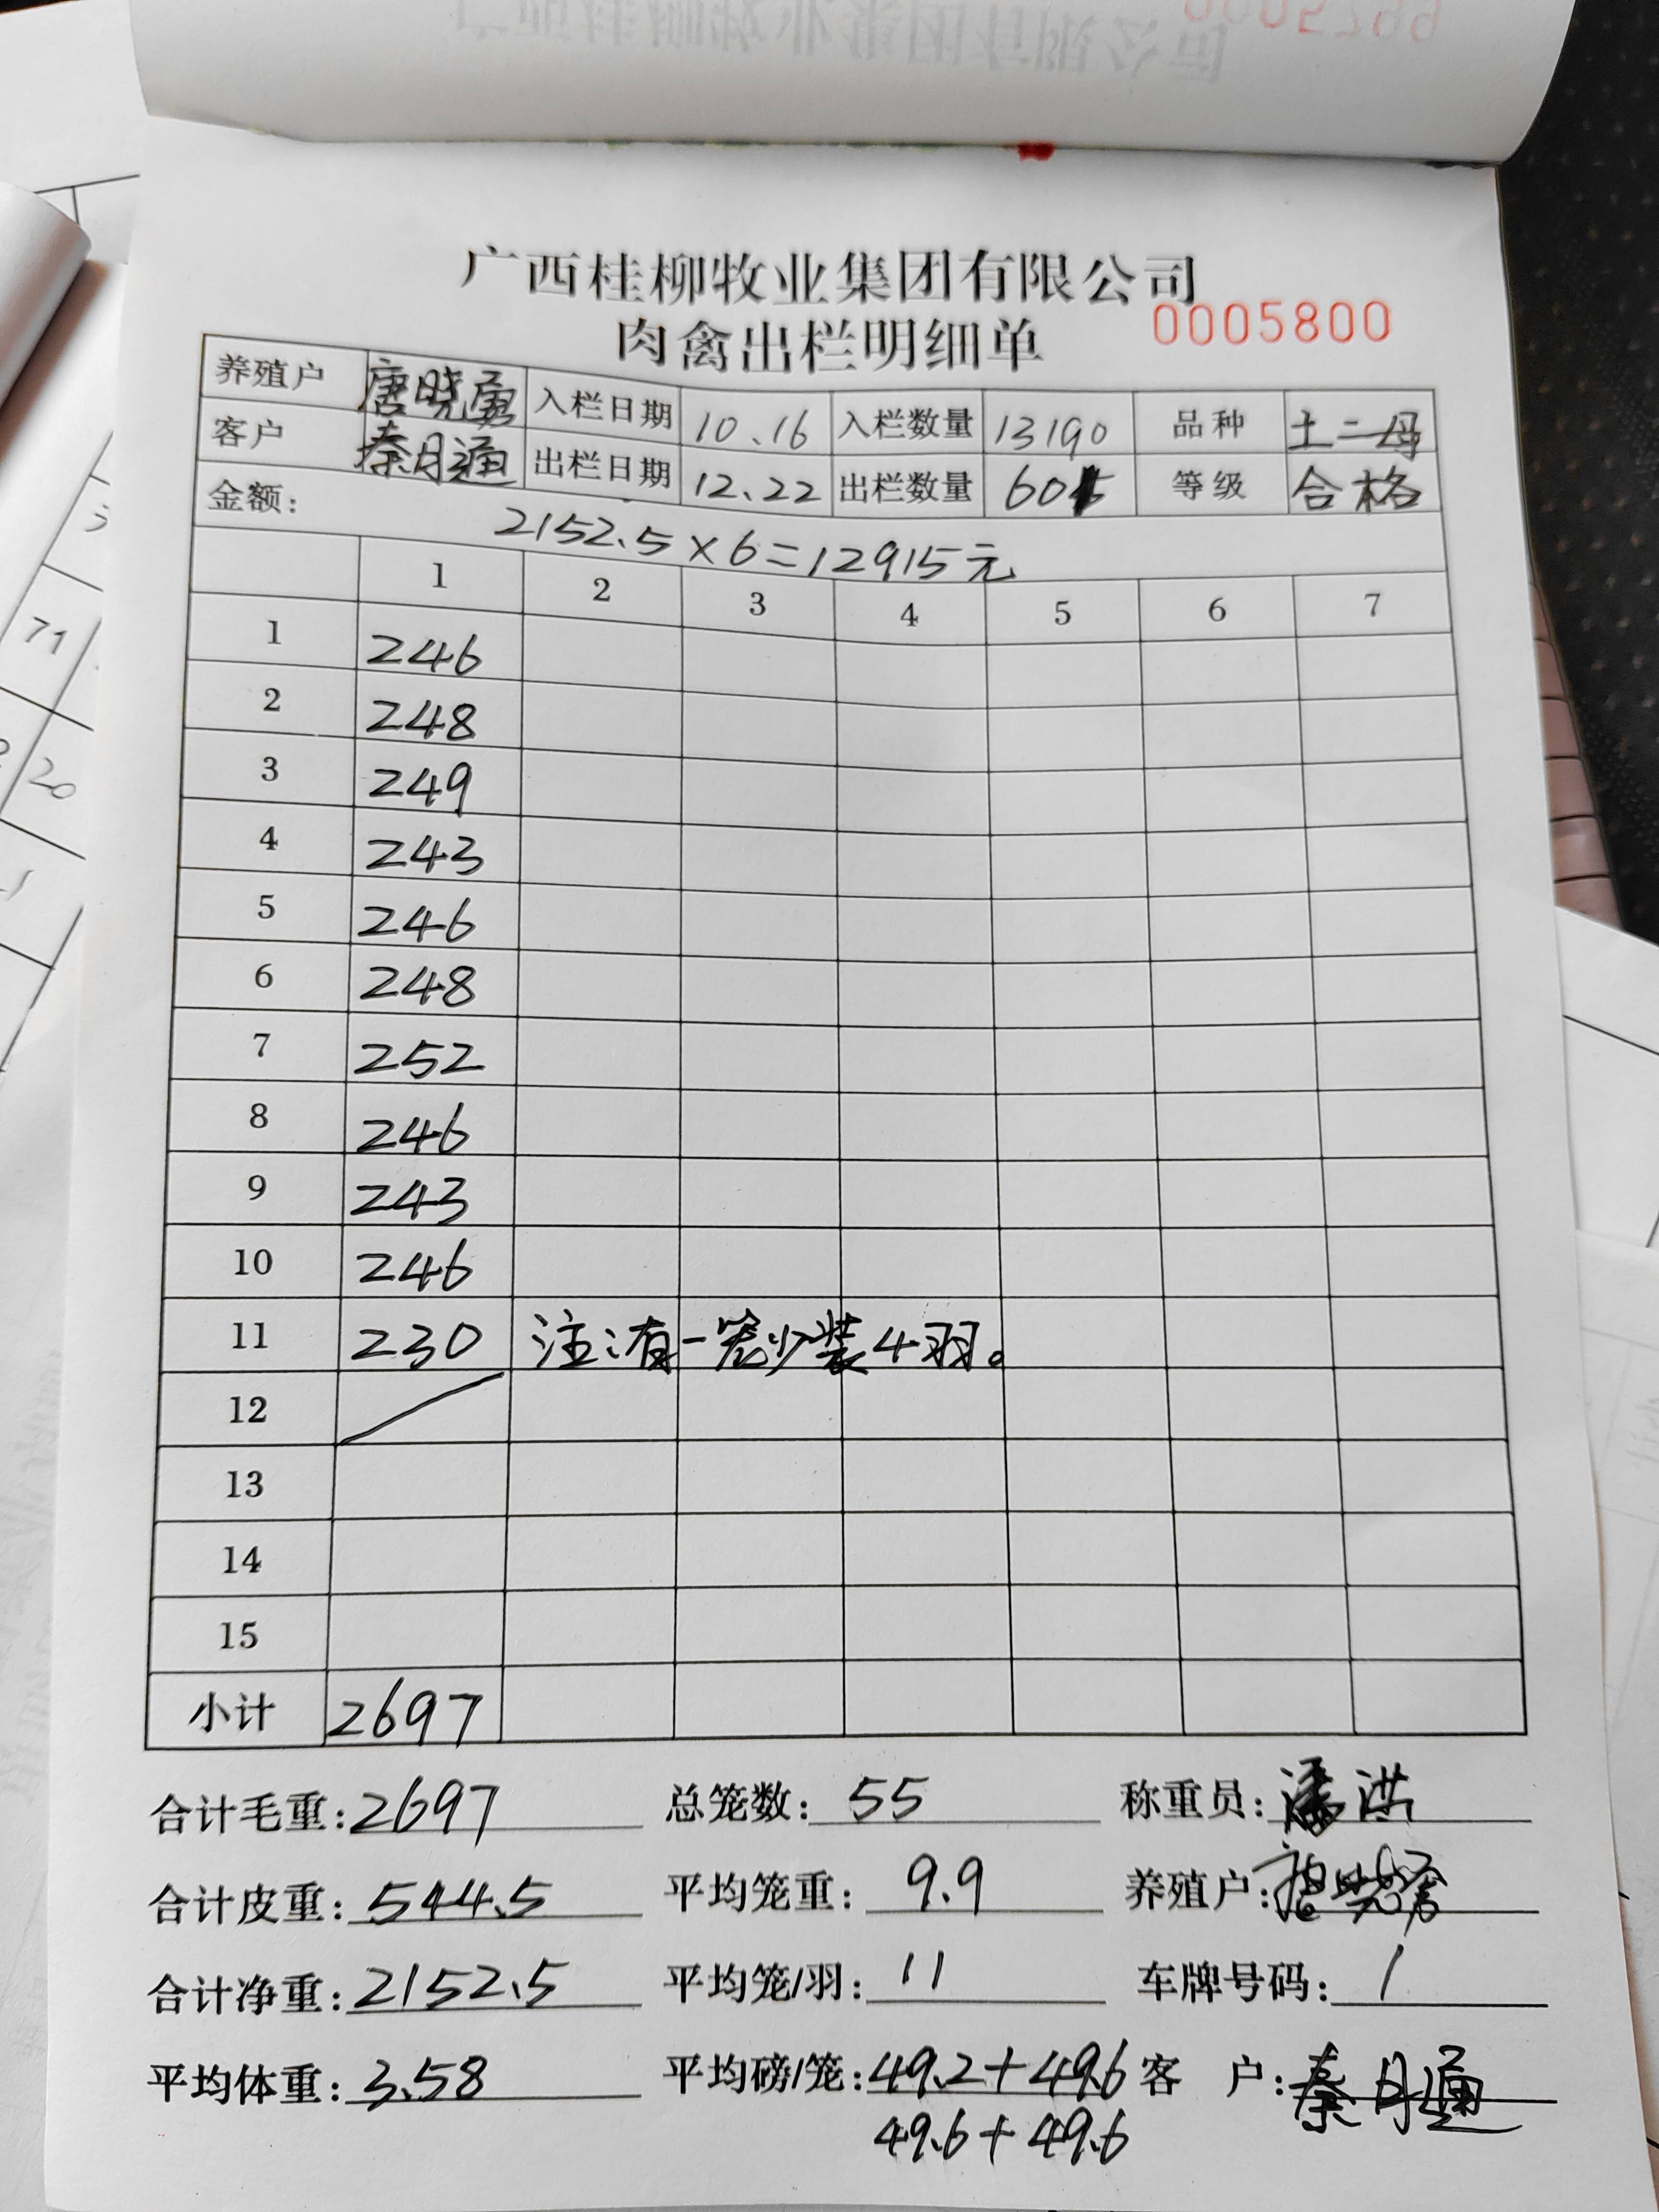 广西桂柳牧业集团有限公司
肉禽出栏明细单 0005800
养殖户 唐晓勇 入栏日期 10.16 入栏数量 13190 品种 土二母
客户 秦月通 出栏日期 12.22 出栏数量 601 等级 合格
金额: 2152.5×6=12915元
1 2 3 4 5 6 7
1 246
2 248
3 249
4 243
5 246
6 248
7 252
8 246
9 243
10 246
11 230 注:有一笼少装4羽。
12
13
14
15
小计 2697
合计毛重:2697 总笼数: 55 称重员:潘洪
合计皮重:544.5 平均笼重: 9.9 养殖户:唐晓勇
合计净重:2152.5 平均笼/羽: 11 车牌号码: /
平均体重:3.58 平均磅/笼:49.2+49.6 客 户:秦月通
49.6+49.6
71
20